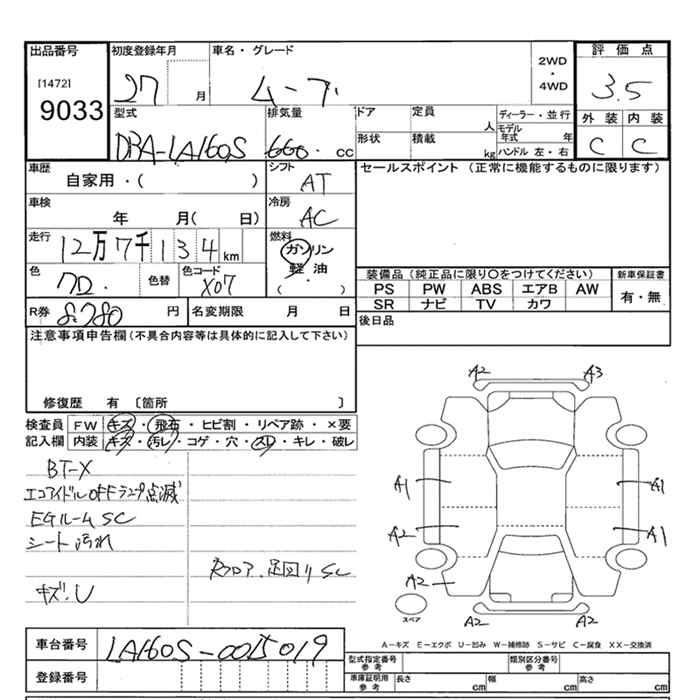 出品番号
[1472]
9033
初度登録年月
27 月
車名・グレード
ムーブ
2WD
・
4WD
評価点
3.5
外装 内装
C C
型式
DBA-LA160S
排気量
660. cc
ドア
定員
人
形状
積載
kg
ディーラー・並行
モデル年式 年
ハンドル 左・右
車歴
自家用・( )
シフト
AT
セールスポイント (正常に機能するものに限ります)
車検
年 月( 日)
冷房
AC
走行
12万7千134km
燃料
ガソリン
軽油
( ・ )
色
色替
色コード
X07
装備品(純正品に限り○をつけてください)
新車保証書
PS PW ABS エアB AW
SR ナビ TV カワ
有・無
R券
8,780 円
名変期限 月 日
後日品
注意事項申告欄(不具合内容等は具体的に記入して下さい)
修復歴 有 [箇所 ]
検査員 FW キズ・飛石・ヒビ割・リペア跡・×要
記入欄 内装 キズ・汚レ・コゲ・穴・スレ・キレ・破レ
BT-X
エコアイドルOFFランプ点滅
EGルームSC
シート汚れ
下回り、足回りSC
キズ.U
A2 A3
A1 A1
A2 A1
A2
A2 A2
スペア
A-キズ E-エクボ U-凹み W-補修跡 S-サビ C-腐食 XX-交換済
車台番号
LA160S-0015019
登録番号
型式指定番号
参考
類別区分番号
参考
車庫証明用
参考
長さ cm
幅 cm
高さ cm